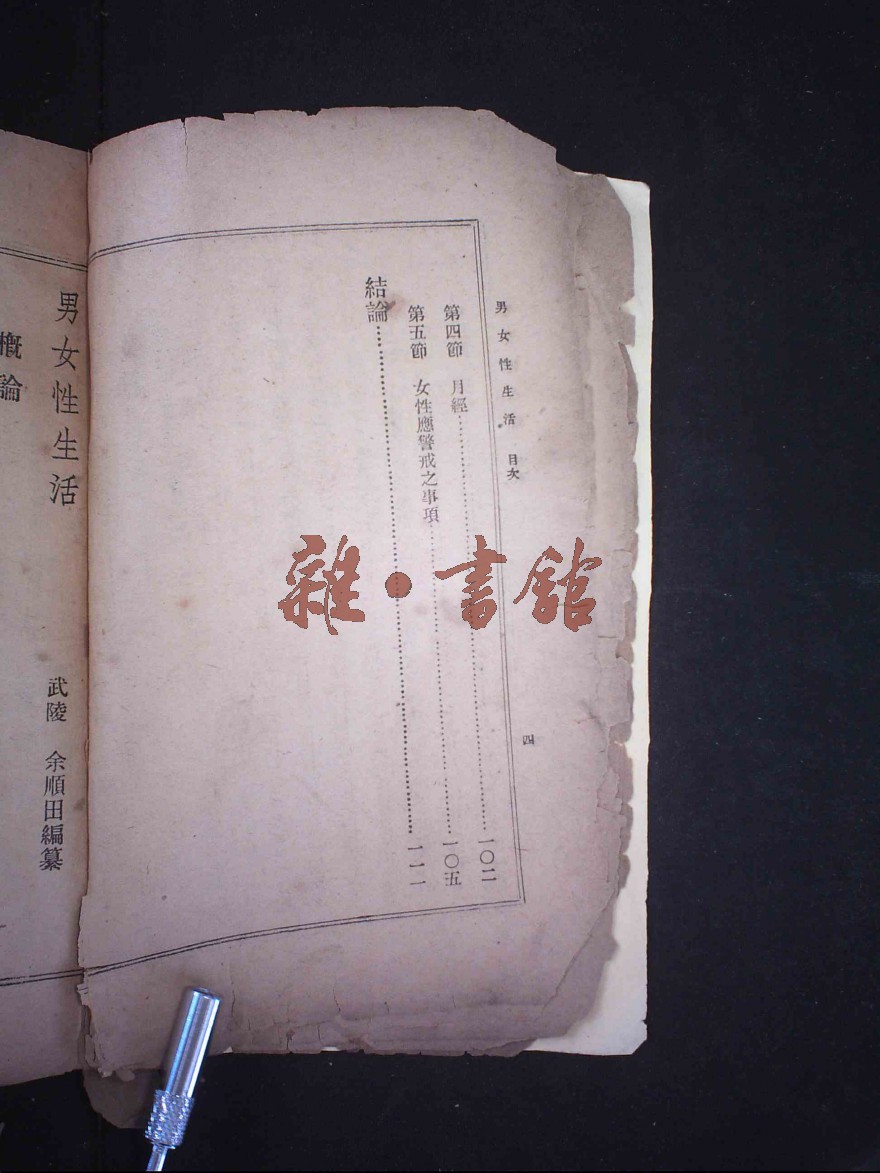 男女性生活 目次
四
第四節 月經……一〇二
第五節 女性應警戒之事項……一〇五
結論……一一一
男女性生活
武陵 余順田編纂
概論
雜·書館